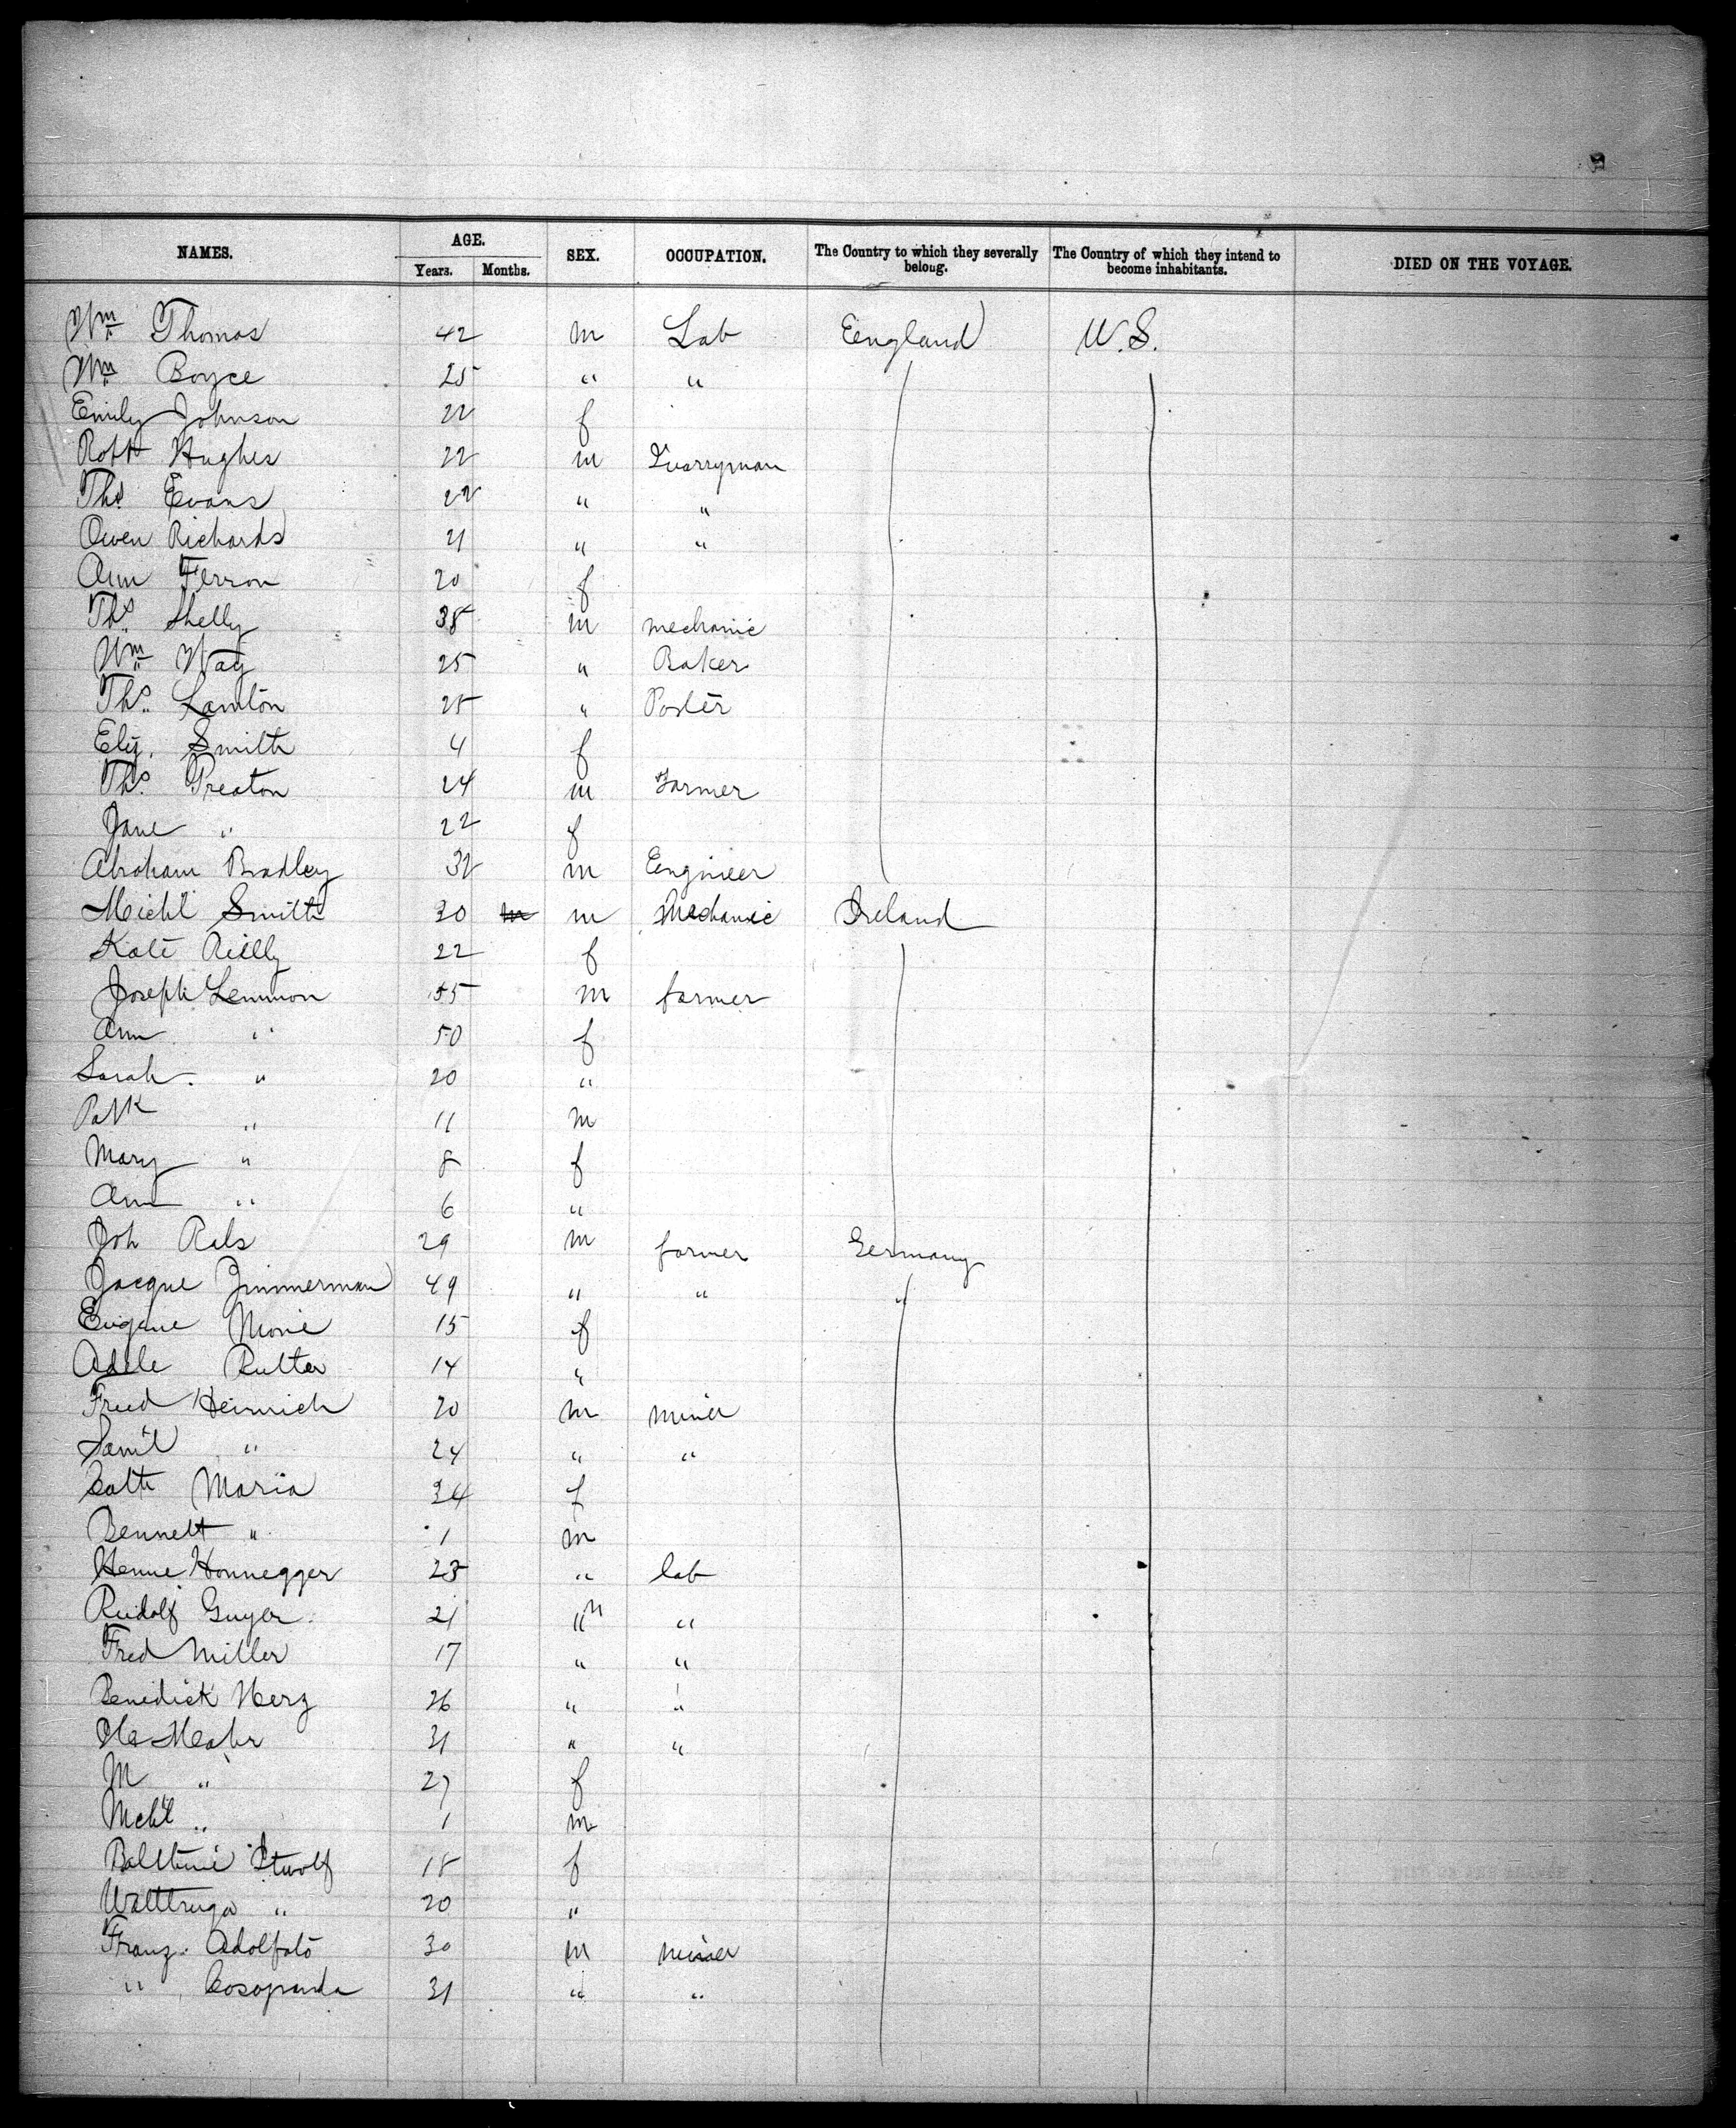 NAMES. AGE. SEX. OCCUPATION. The Country to which they severally belong. The Country of which they intend to become inhabitants. DIED ON THE VOYAGE.
Years. Months.
Wm Thomas 42 m Lab England U.S.
Wm Boyce 25 " "
Emily Johnson 22 f
Robt Hughes 22 m Quarryman
Thos Evans 22 " "
Owen Richards 21 " "
Ann Ferron 20 f
Thos Shelly 38 m mechanic
Wm Way 25 " Baker
Thos Lamton 25 " Porter
Eliz. Smith 4 f
Thos Preaton 24 m Farmer
Jane " 22 f
Abraham Bradley 32 m Engineer
Michl Smith 30 m m Mechanic Ireland
Kate Reilly 22 f
Joseph Lemmon 55 m farmer
Ann " 50 f
Sarah " 20 "
Patk " 11 m
Mary " 8 f
Ann " 6 "
Joh Rals 29 m farmer Germany
Jacque Zimmerman 49 " " "
Eugene Morie 15 f
Adele Rutter 14 "
Fried Heinrich 20 m miner
Saml " 24 " "
Maria 24 f
Bennett " 1 m
Henne Honnegger 23 " lab
Rudolf Guyer 21 " m "
Fred Miller 17 " "
Benedick Herz 26 " "
31 " "
M " 27 f
Mchl " 1 m
18 f
20 "
Franz Adolfoto 30 m miner
" 31 " "